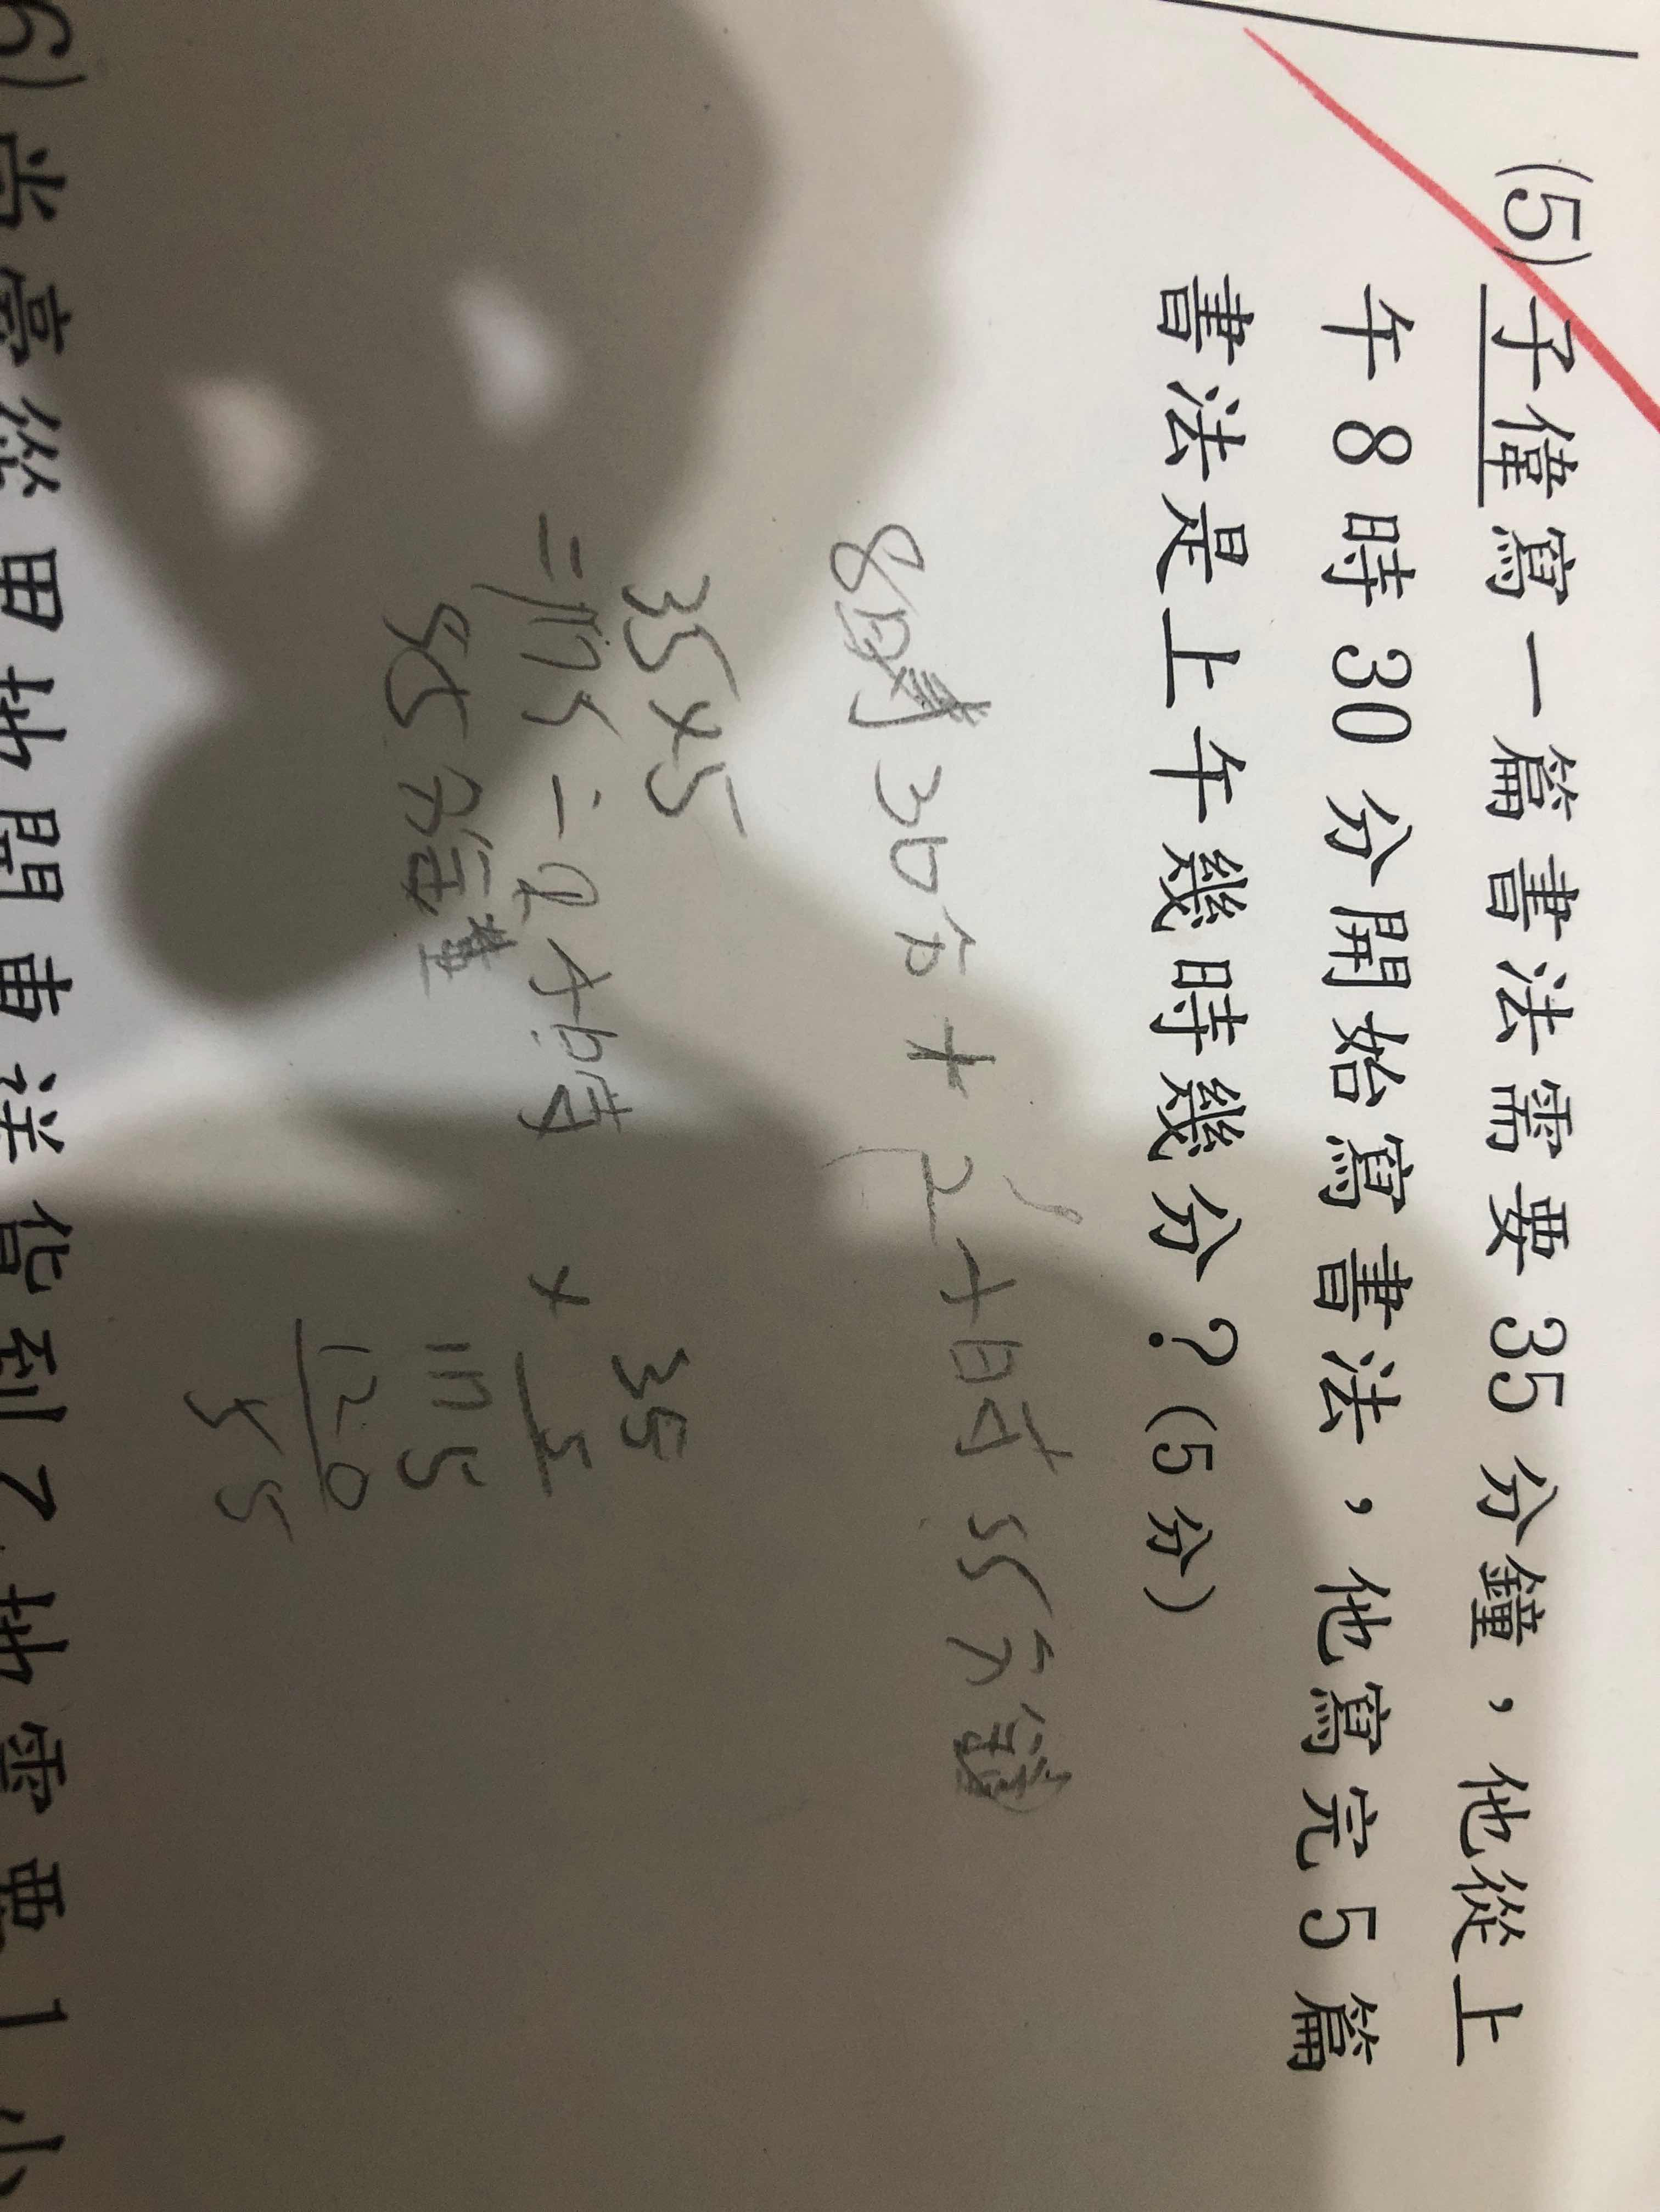 (5)子偉寫一篇書法需要35分鐘，他從上
午8時30分開始寫書法，他寫完5篇
書法是上午幾時幾分？(5分)
8時30分+2小時55分鐘
35×5
=175=2小時
55分鐘
35
× 5
175
120
55
6)尚豪從甲地開車送貨到乙地需要1小